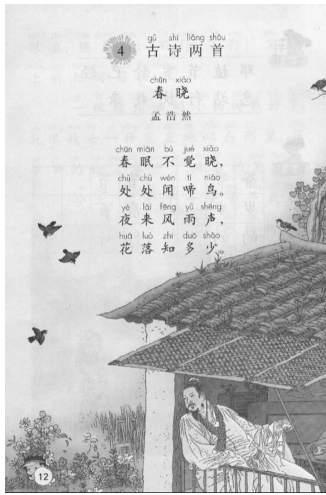 gǔ shī liǎng shǒu
4 古诗两首
chūn xiǎo
春 晓
孟浩然
chūn mián bù jué xiǎo
春 眠 不 觉 晓，
chù chù wén tí niǎo
处 处 闻 啼 鸟。
yè lái fēng yǔ shēng
夜 来 风 雨 声，
huā luò zhī duō shǎo
花 落 知 多 少
12